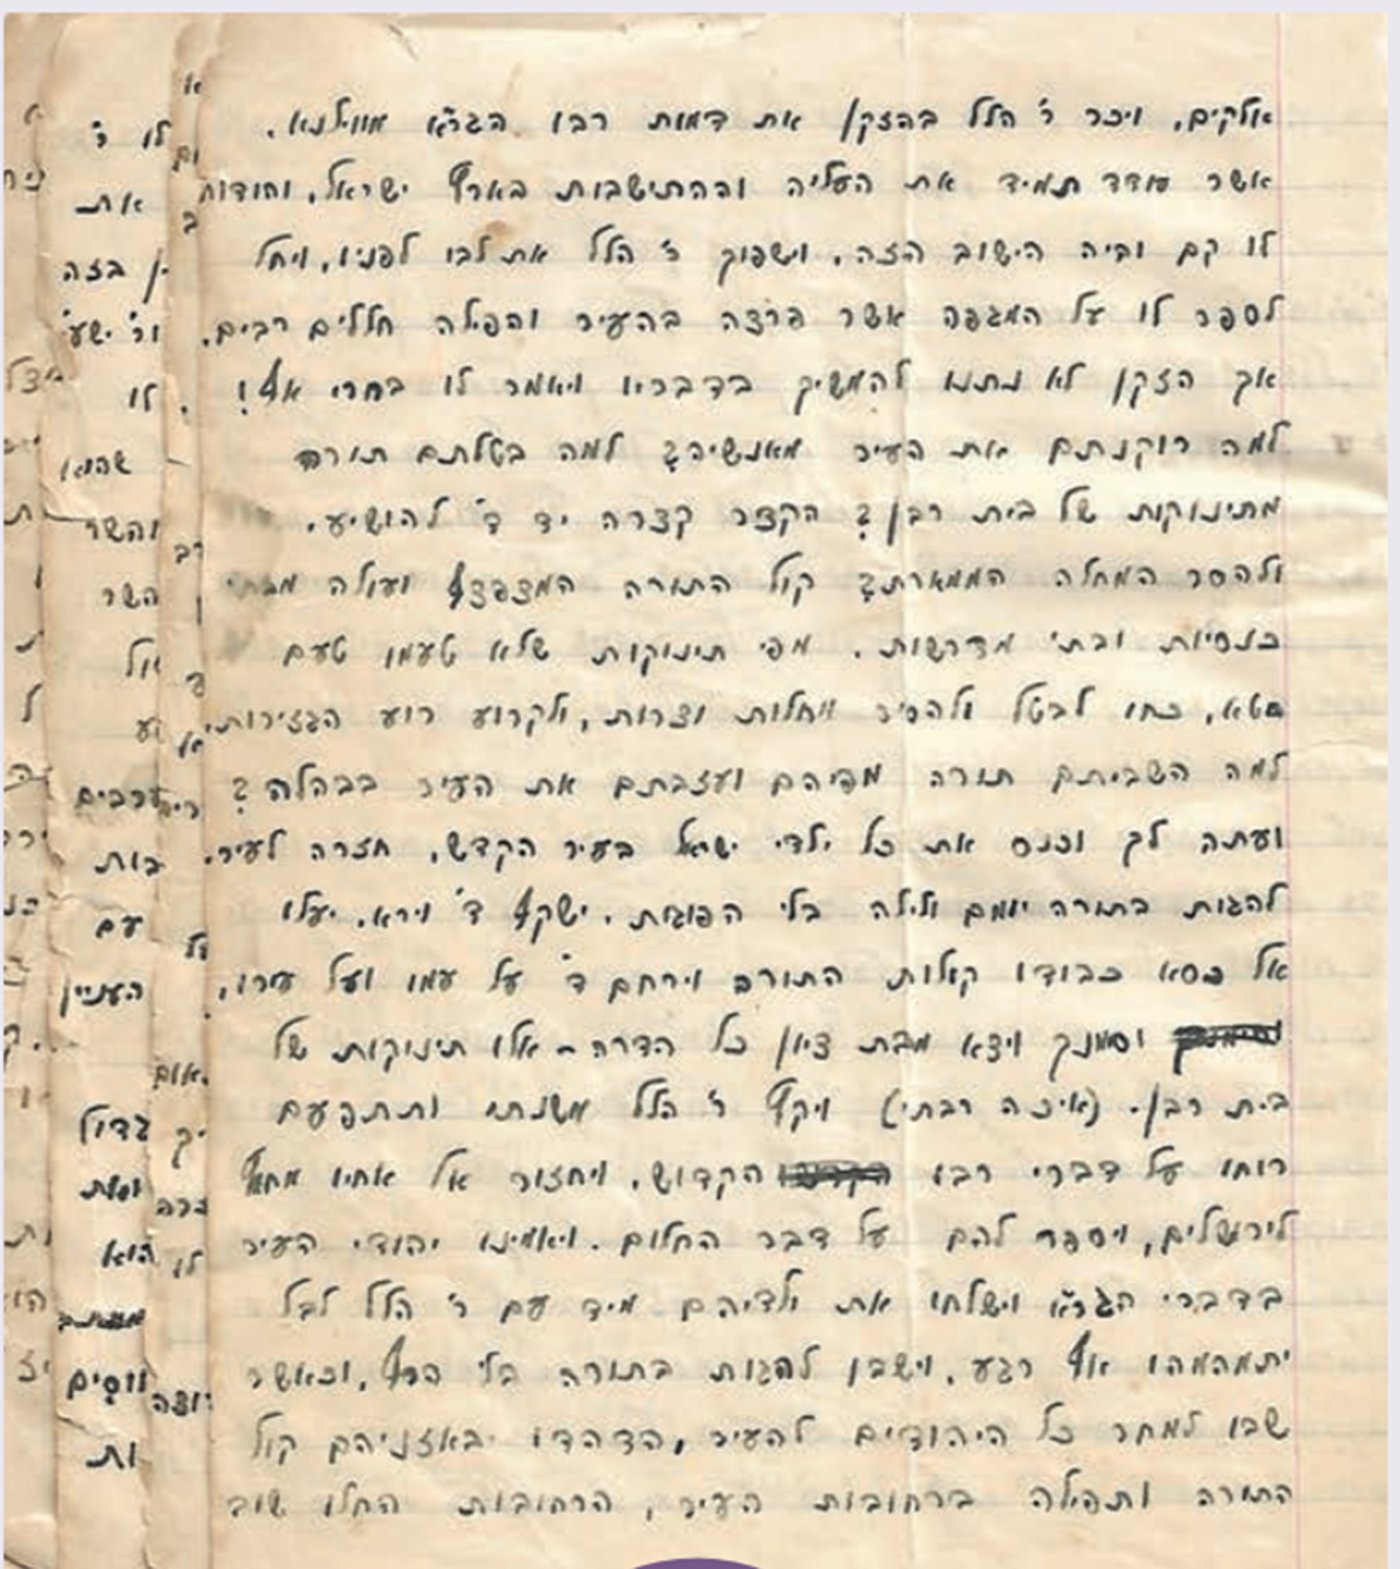 אלקים, ויכר ר' הלל בהזקן את דמות רבו הגר"א מווילנא.
אשר עודד תמיד את העליה וההתישבות בארץ ישראל, והודות
לו קם והיה הישוב הזה. וישפוך ר' הלל את לבו לפניו, ויחל
לספר לו על המגפה אשר פרצה בהעיר והפילה חללים רבים.
אך הזקן לא נתנו להמשיך בדבריו ויאמר לו בחרי אף!
למה רוקנתם את העיר מאנשיה? למה בטלתם תורה
מתינוקות של בית רבן? הקצר קצרה יד ד' להושיע.
ולהסר המחלה הממארת? קול התורה המצפצף ועולה מבתי
כנסיות ובתי מדרשות. מפי תינוקות שלא טעמו טעם
חטא, כחו לבטל ולהסיר מחלות וצרות, ולקרוע רוע הגזירות.
למה השביתם תורה מפיהם ועזבתם את העיר בבהלה?
ועתה לך וכנס את כל ילדי ישראל בעיר הקדש, חזרה לעיר.
להגות בתורה יומם ולילה בלי הפוגות. ישקף ד' וירא. יעלו
אל כסא כבודו קולות התורה וירחם ד' על עמו ועל עירו,
וסומך ויצא מבת ציון כל הדרה - אלו תינוקות של
בית רבן. (איכה רבתי) ויקץ ר' הלל משנתו ותתפעם
רוחו על דברי רבו הקדוש, ויחזור אל אחיו מחוץ
לירושלים, ויספר להם על דבר החלום. ויאמינו יהודי העיר
בדברי הגר"א וישלחו את ילדיהם מיד עם ר' הלל לבל
יתמהמהו אף רגע, וישבו להגות בתורה בלי הרף, וכאשר
שבו למחר כל היהודים להעיר, הדהדו באזניהם קול
התורה ותפילה ברחובות העיר, הרחובות החלו שוב